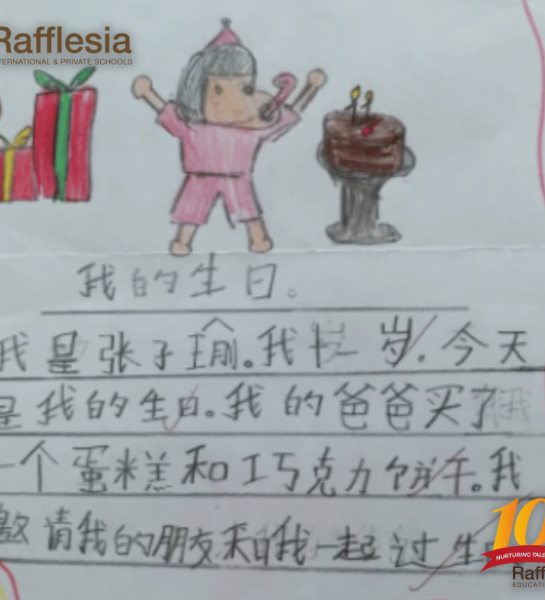 Rafflesia
TERNATIONAL & PRIVATE SCHOOLS
我的生日。
我是张子瑜。我岁,今天
是我的生日。我的爸爸买了
一个蛋糕和巧克力饼干。我
邀请我的朋友和我一起过生
10
NURTURING TALE
Raff
EDUCATIO